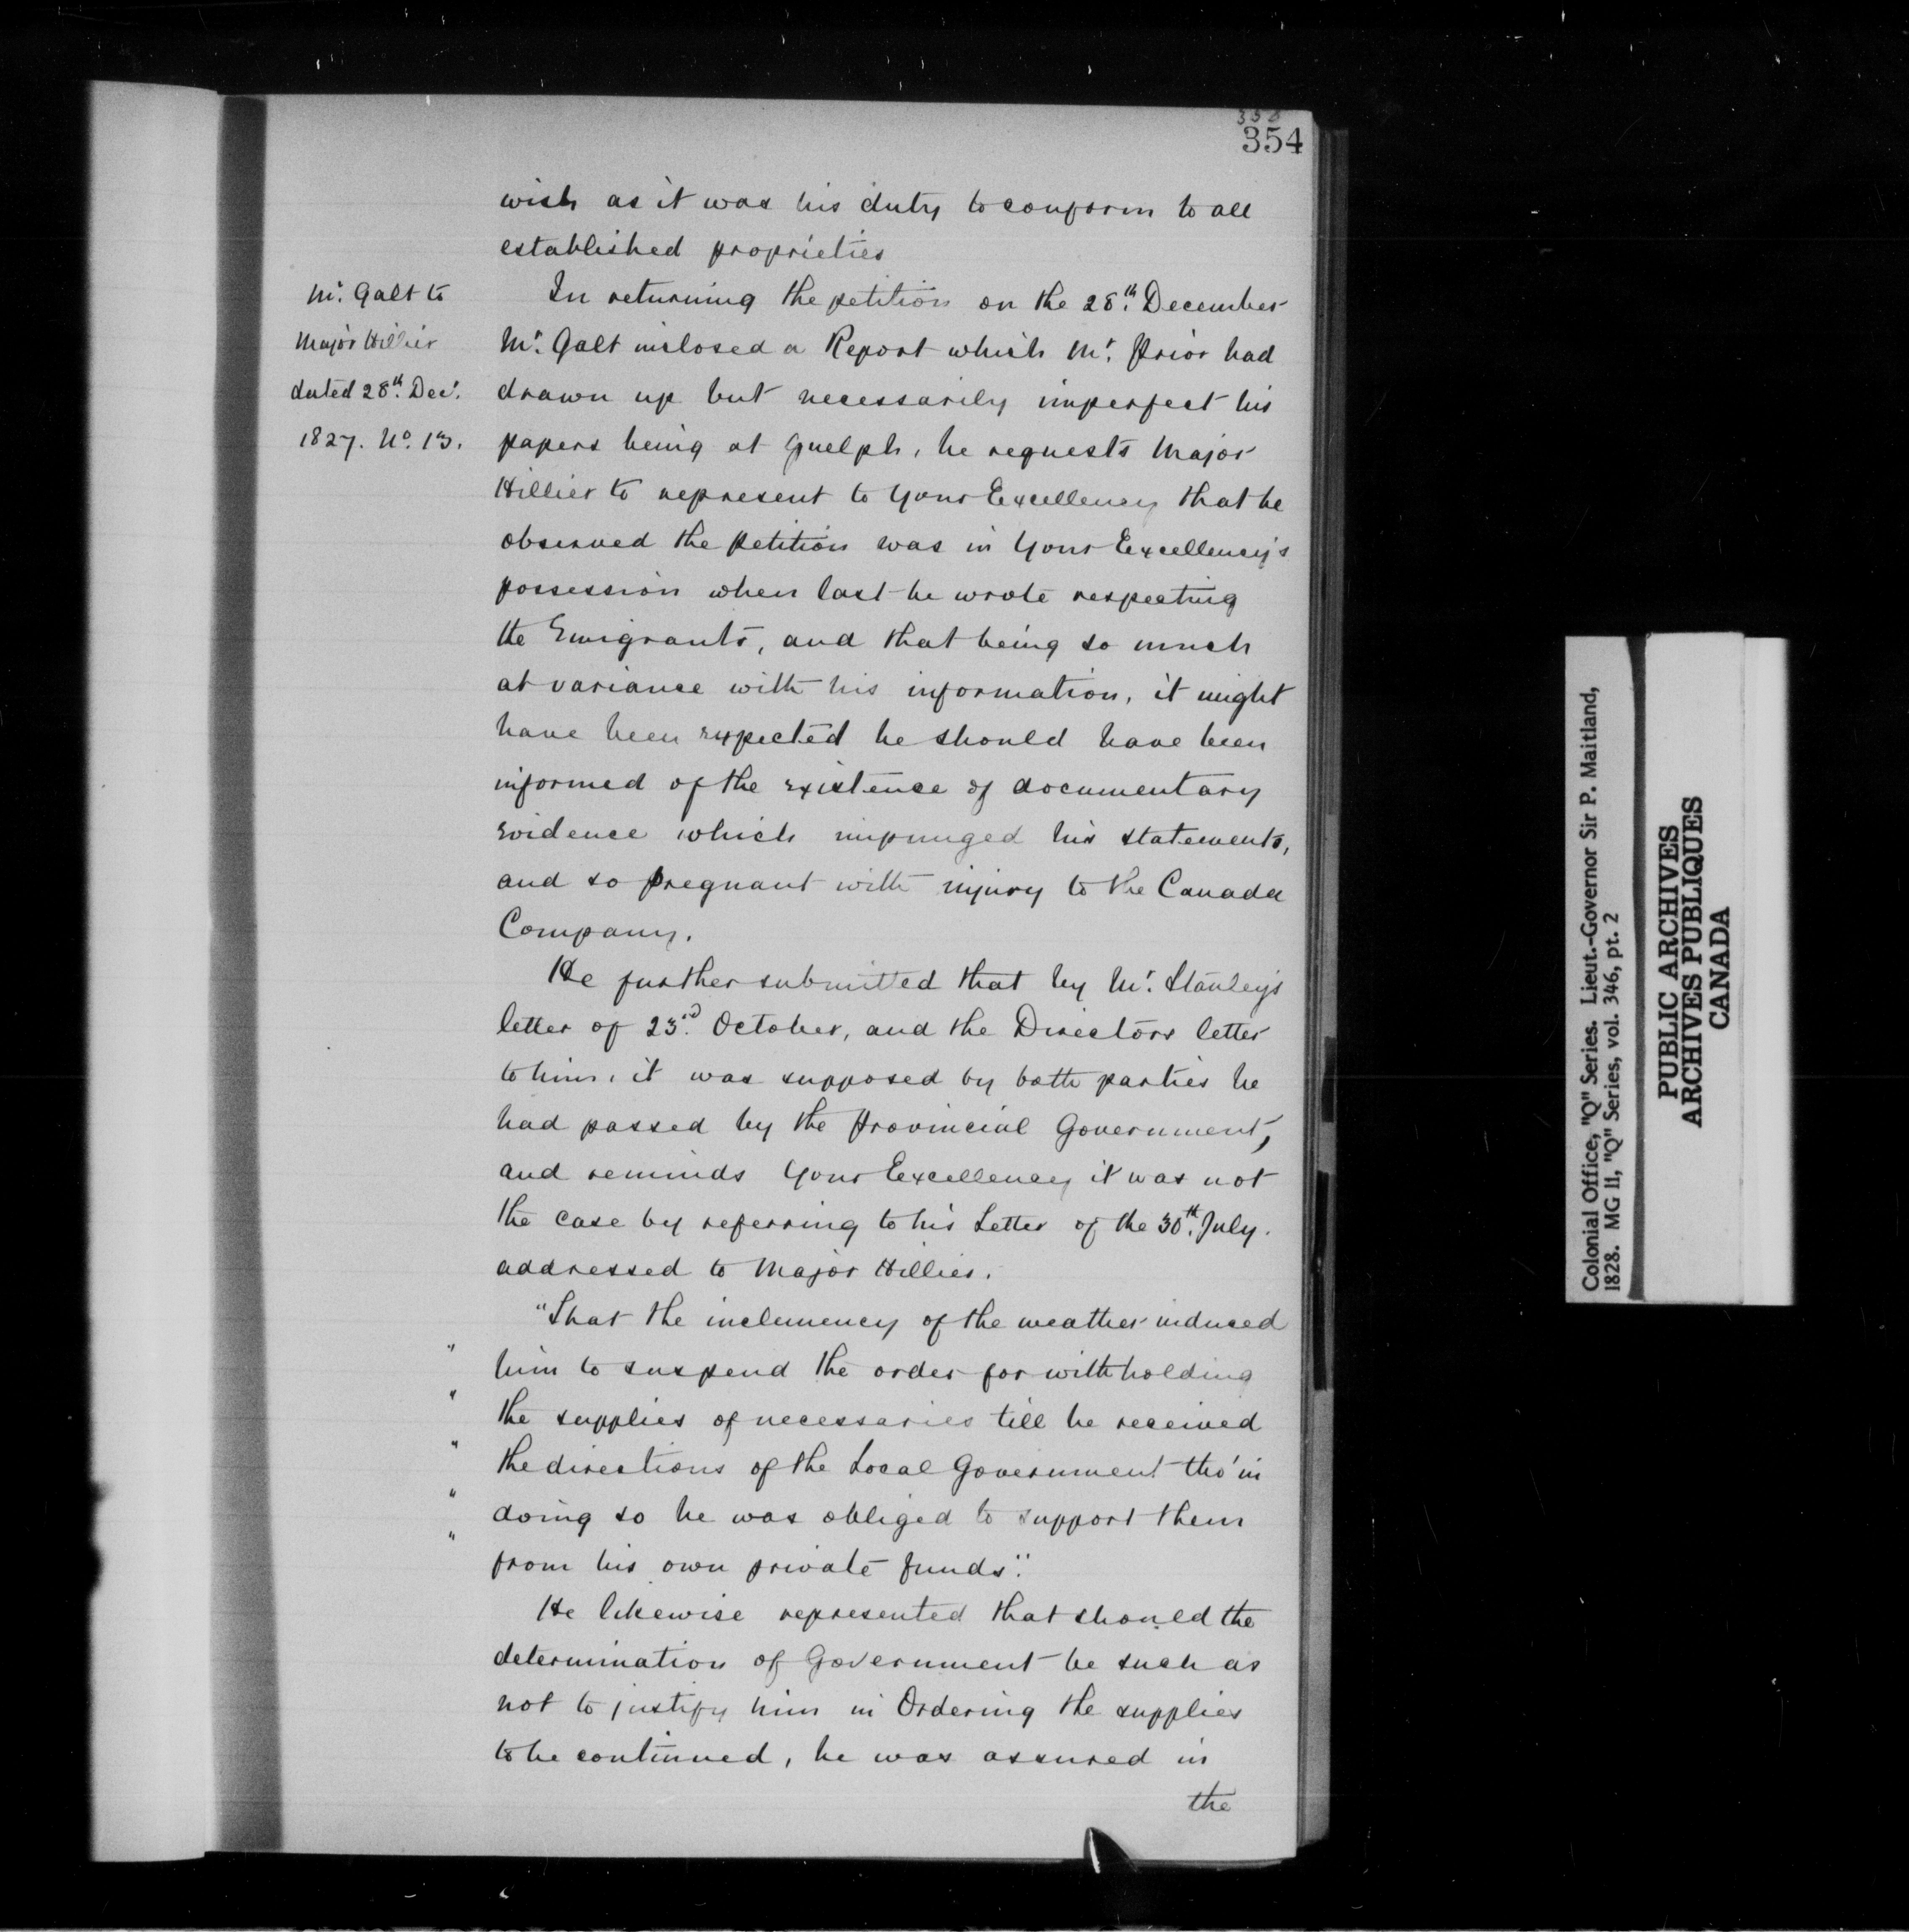 354
wish as it was his duty to conform to all
established proprieties
Mr. Galt to
Major Hillier
dated 28th. Decr.
1827. No. 13.
In returning the petition on the 28th. December
Mr. Galt inclosed a Report which Mr. Prior had
drawn up but necessarily imperfect his
papers being at Guelph, he requests Major
Hillier to represent to Your Excellency that he
observed the petition was in Your Excellency's
possession when last he wrote respecting
the Emigrants, and that being so much
at variance with his information, it might
have been expected he should have been
informed of the existence of documentary
evidence which impunged his statements,
and so pregnant with injury to the Canada
Company.
He further submitted that by Mr. Stanley's
letter of 23rd. October, and the Directors letter
to him, it was supposed by both parties he
had passed by the Provincial Government,
and reminds Your Excellency it was not
the case by referring to his Letter of the 30th. July.
addressed to Major Hillier.
"That the inclemency of the weather induced
" him to suspend the order for withholding
" the supplies of necessaries till he received
" the directions of the Local Government tho' in
" doing so he was obliged to support them
" from his own private funds".
He likewise represented that should the
determination of Government be such as
not to justify him in Ordering the supplies
to be continued, he was assured in
the
Colonial Office, "Q" Series. Lieut.-Governor Sir P. Maitland,
1828. MG 11, "Q" Series, vol. 346, pt. 2
PUBLIC ARCHIVES
ARCHIVES PUBLIQUES
CANADA